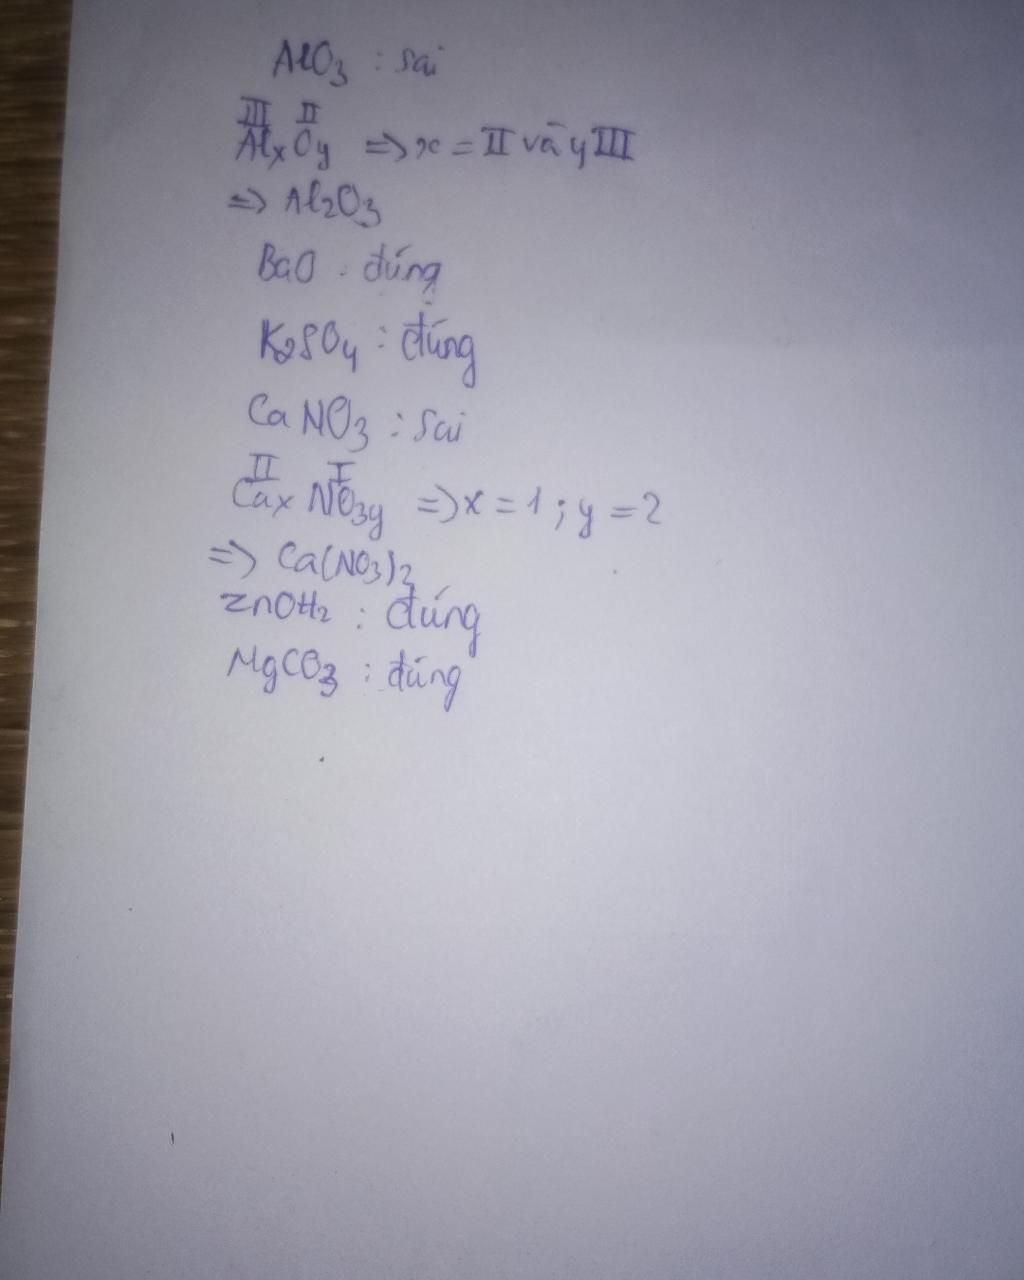 AlO3 : sai
III II
AlxOy => x = II và y III
=> Al2O3
BaO : đúng
K2SO4 : đúng
CaNO3 : sai
II I
Cax NO3y => x = 1 ; y = 2
=> Ca(NO3)2
ZnOH2 : đúng
MgCO3 : đúng